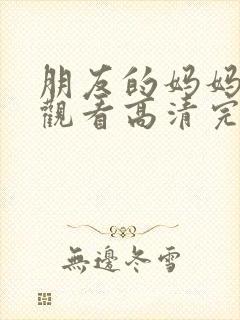 朋友的妈妈
觀看高清完
無邊冬雪